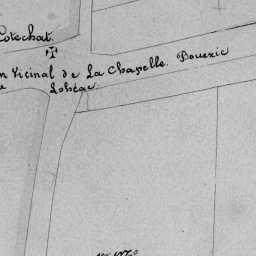 Cotechat
n Vicinal de La Chapelle Bouexic
Lohéac